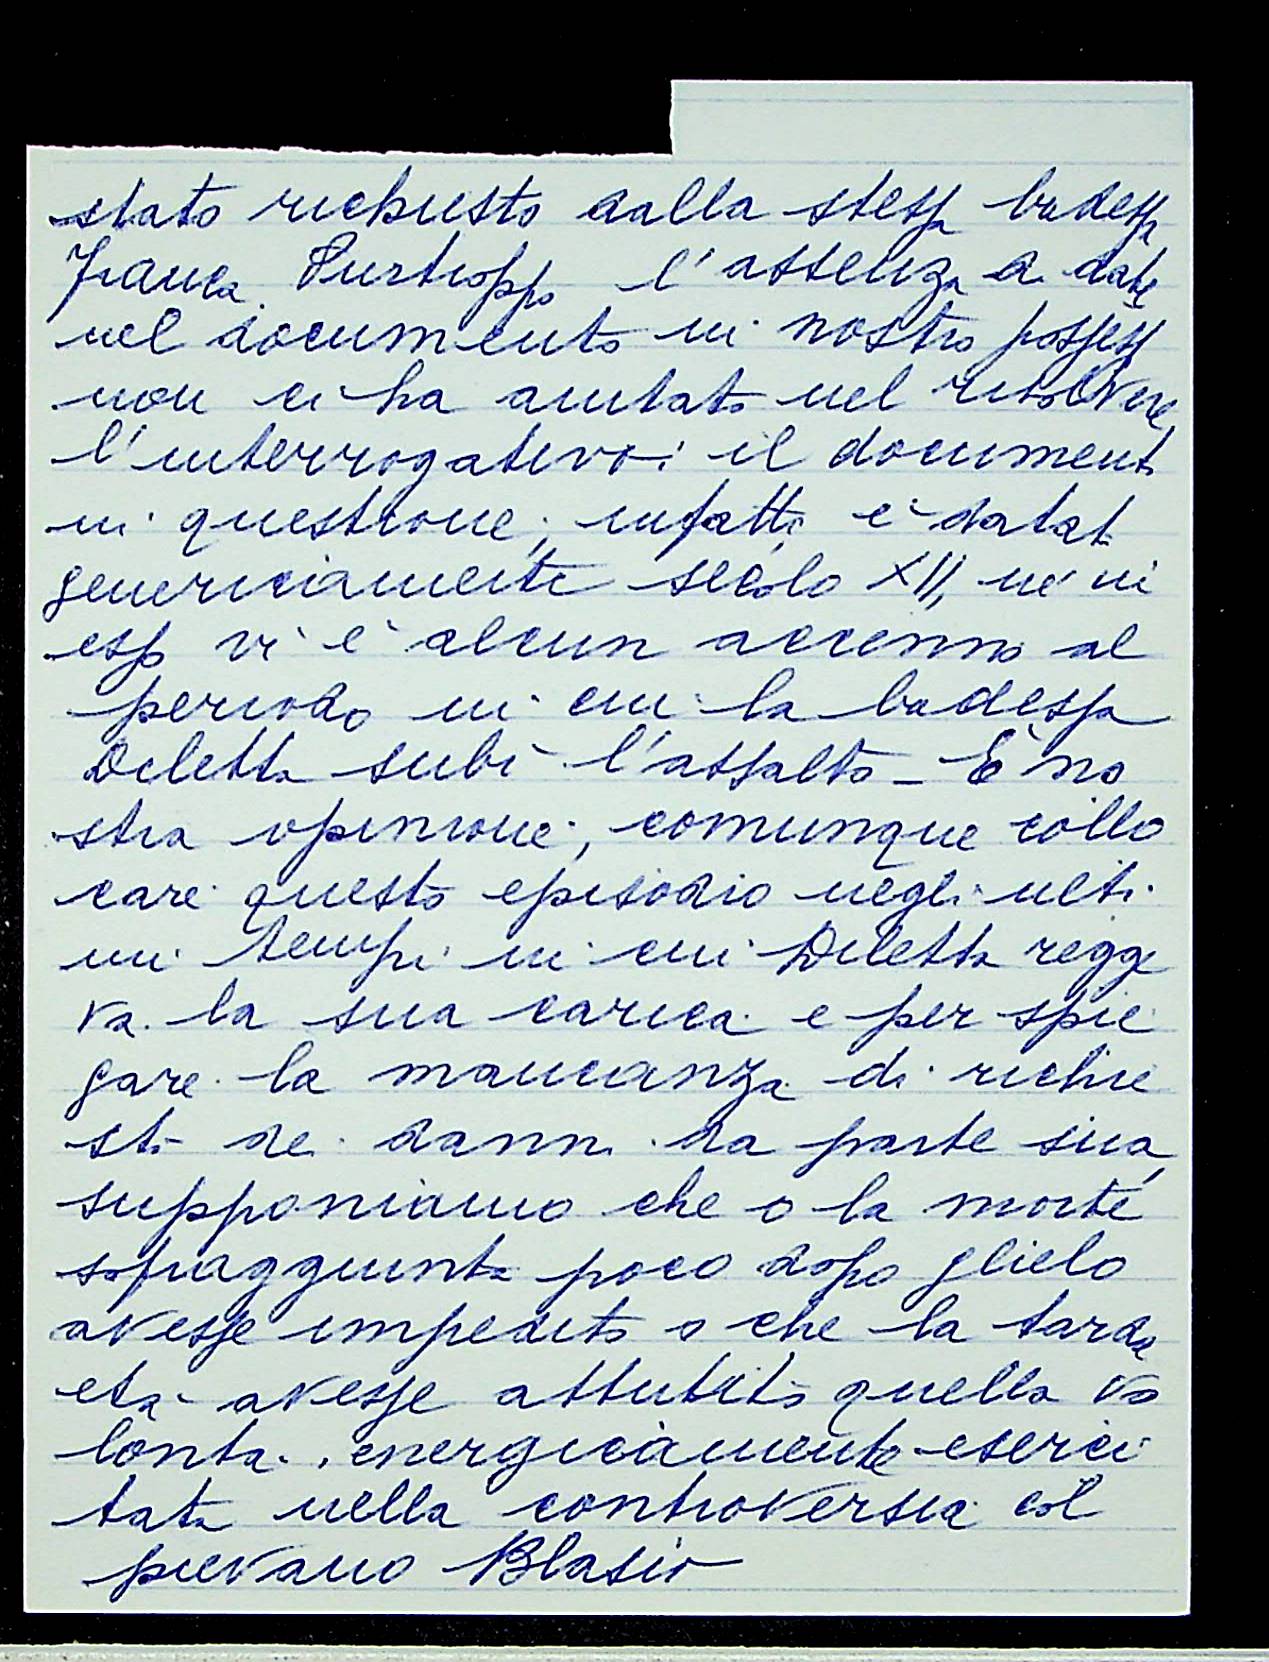 stato richiesto dalla stessa badessa
Franca. Purtroppo l'assenza di date
nel documento in nostro possesso
non ci ha aiutato nel risolvere
l'interrogativo: il documento
in questione, infatti, è datato
genericiamente secolo XII, né in
esso vi è alcun accenno al
periodo in cui la badessa
Diletta subì l'assalto - È no
stra opinione, comunque collo
care questo episodio negli ulti
mi tempi in cui Diletta regge
va la sua carica e per spie
gare la mancanza di richie
sta dei danni da parte sua,
supponiamo che o la morte
sopraggiunta poco dopo glielo
avesse impedito o che la tarda
età avesse attutito quella vo
lontà energiciamente eserci
tata nella controversia col
pievano Blasio